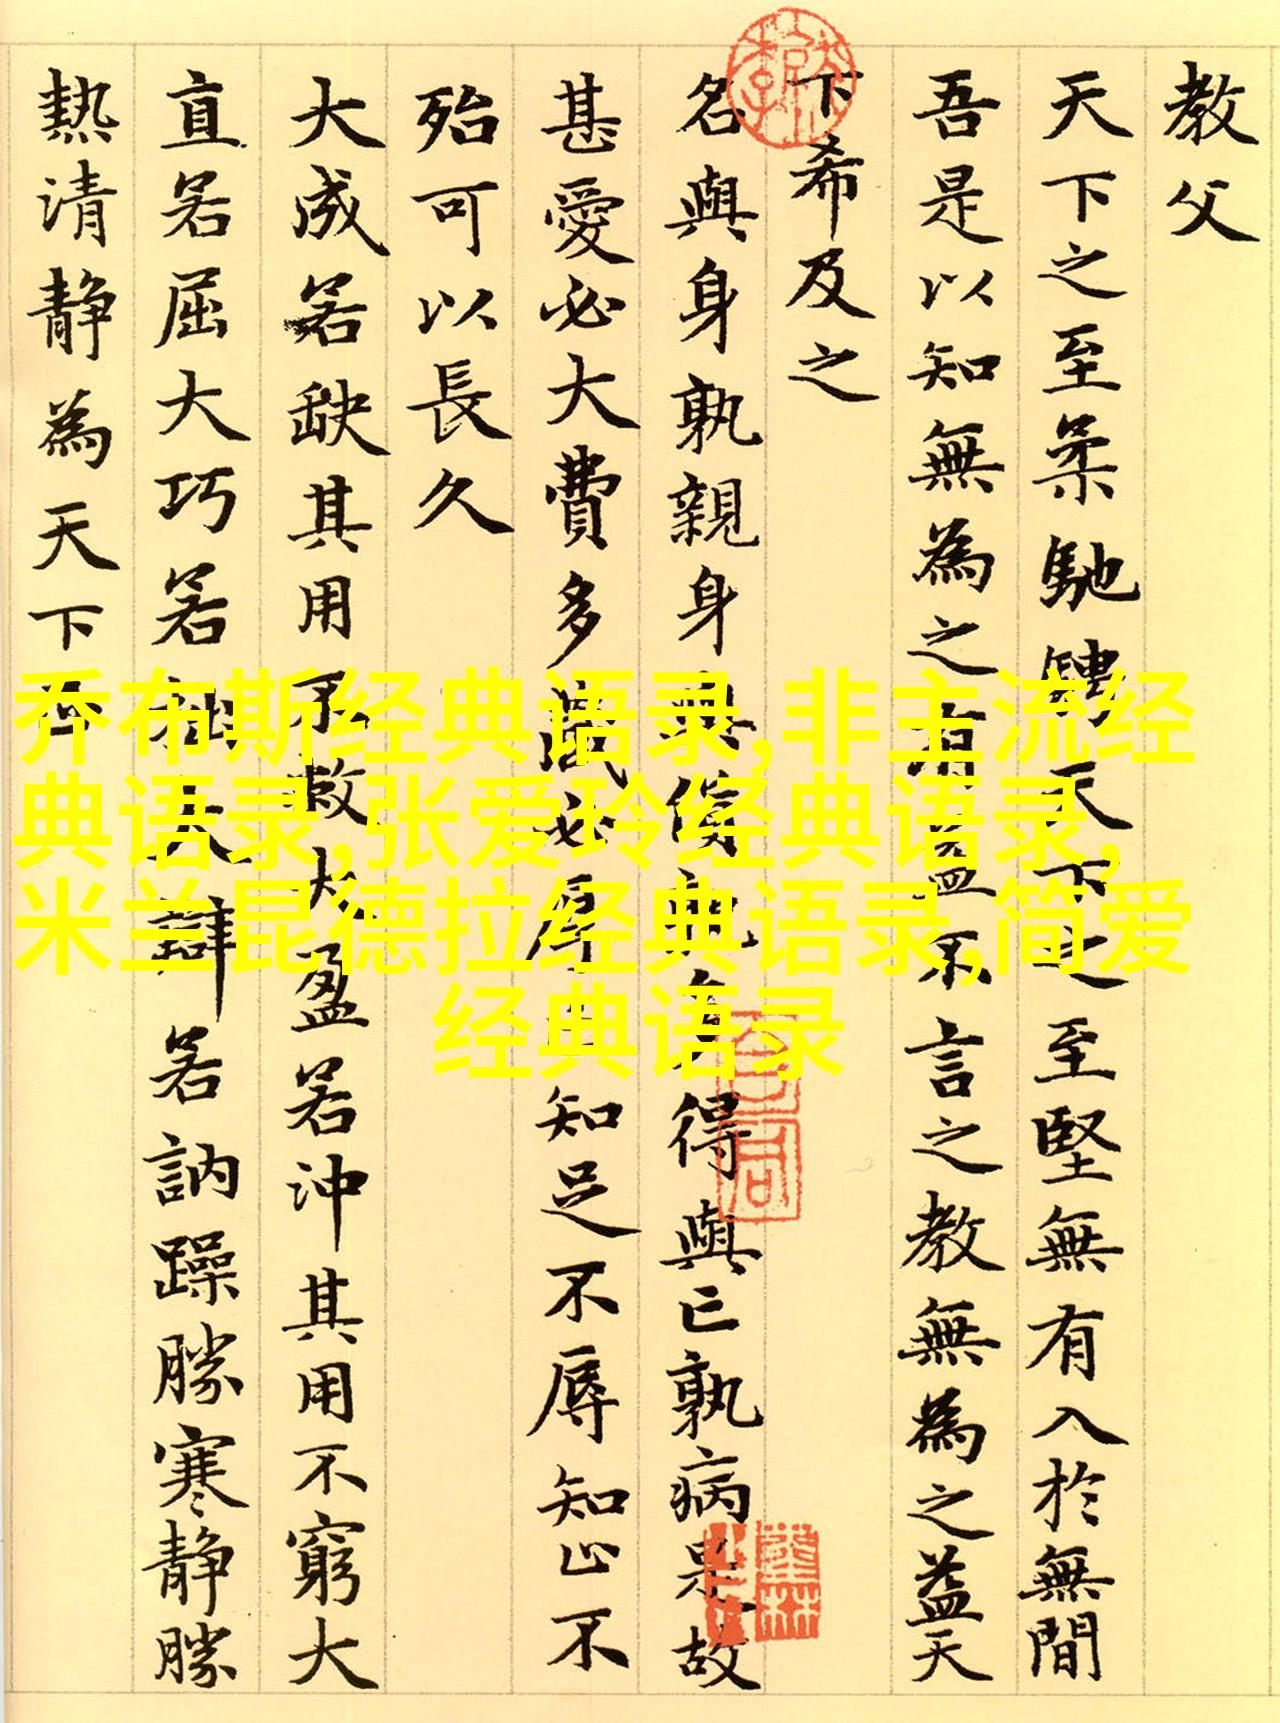 教父
天下之至柔馳騁天下之至堅無有入於無間
吾是以知無為之有益不言之教無為之益天
下希及之
名與身孰親身與貨孰多得與亡孰病是故
甚愛必大費多藏必厚亡知足不辱知止不
殆可以長久
大成若缺其用不敝大盈若沖其用不窮大
直若屈大巧若拙大辯若訥躁勝寒静勝
熱清静為天下正
乔布斯经典语录,非主流经
典语录,张爱玲经典语录,
米兰昆德拉经典语录,简爱
经典语录